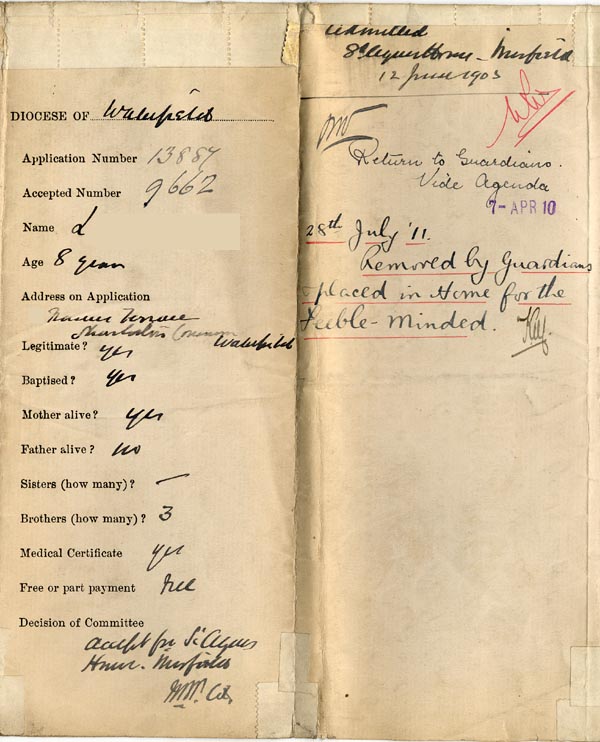 DIOCESE OF Wakefield
Application Number 13887
Accepted Number 9662
Name
Age 8 years
Address on Application
Terrace
Common
Wakefield
Legitimate? yes
Baptised? yes
Mother alive? yes
Father alive? no
Sisters (how many)? —
Brothers (how many)? 3
Medical Certificate yes
Free or part payment free
Decision of Committee
accept for St Agnes
Home. Mirfield
Admitted
St Agnes Home - Mirfield
12 June 1903
Return to Guardians.
Vide Agenda
7-APR 10
28th July '11.
Removed by Guardians
placed in Home for the
Feeble-Minded.